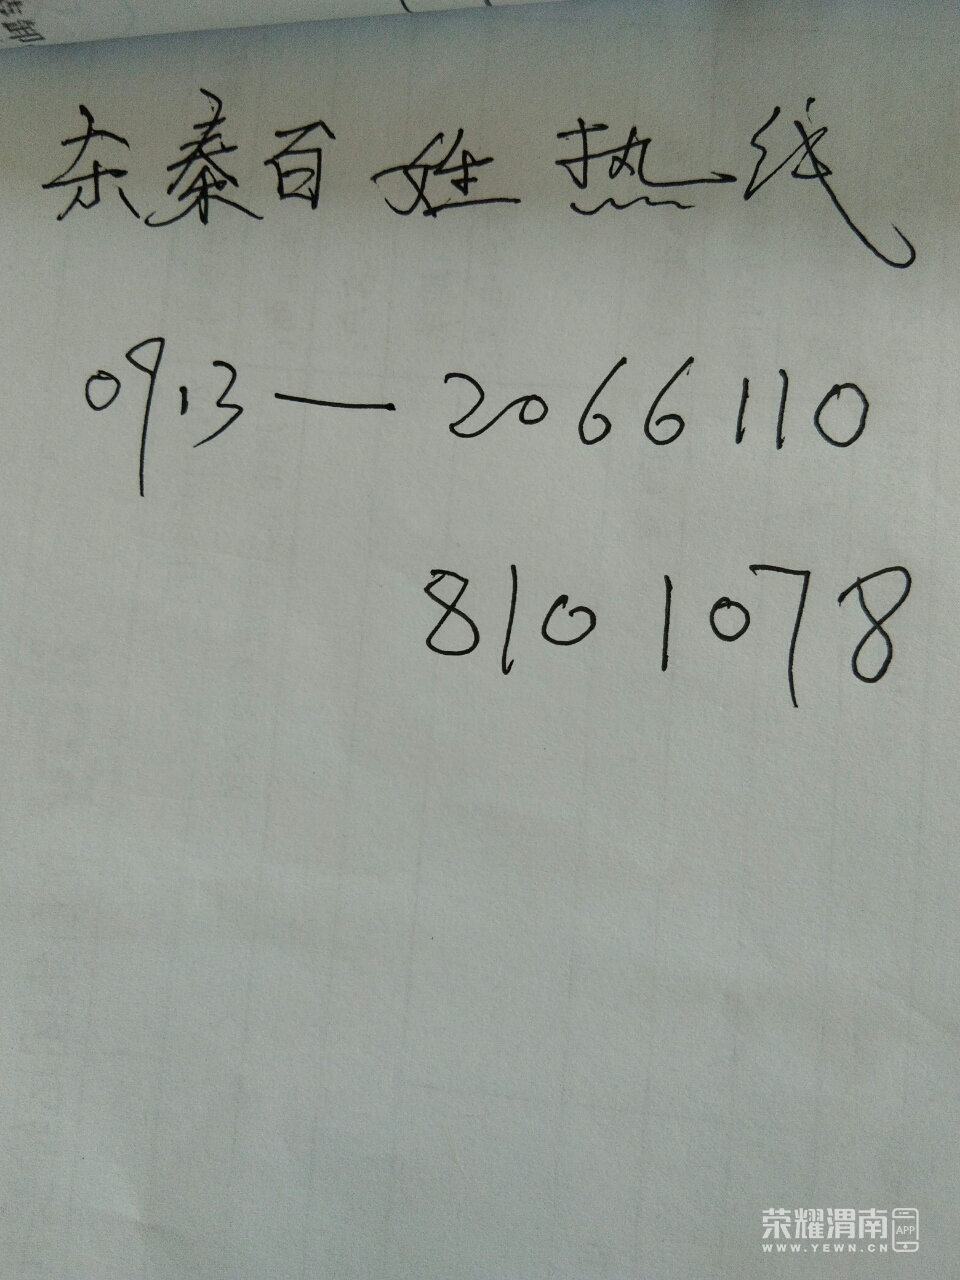 东秦百姓热线
0913—2066110
8101078
荣耀渭南APP
WWW.YEWN.CN